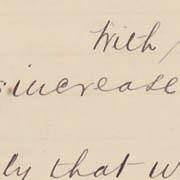 With
increase
ly that w